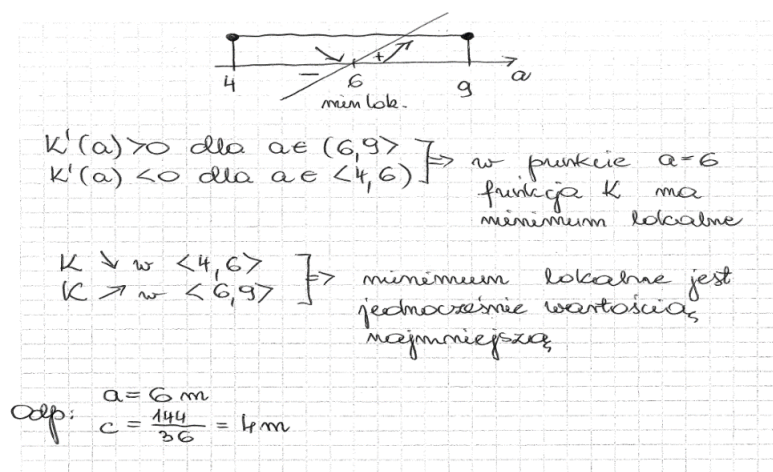 4 − 6 + 9 a
min lok.
K'(a)>0 dla a∈ (6,9> ⇒ w punkcie a=6
K'(a) <0 dla a∈ <4,6) funkcja K ma
minimum lokalne
K ↘ w <4,6> ⇒ minimum lokalne jest
K ↗ w <6,9> jednocześnie wartością
najmniejszą
Odp: a = 6 m
c = 144/36 = 4m